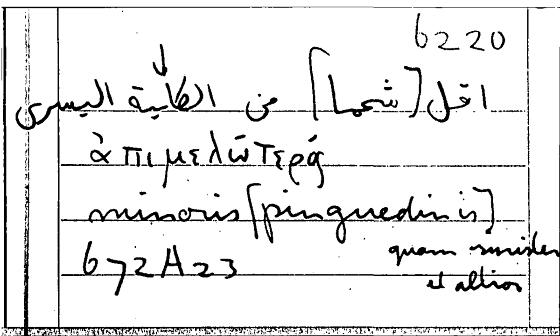 6220
اقل [شحما] من الكلية اليسرى
ἀπιμελώτερος
minoris [pinguedinis]
quam sinister
et altior
672A23